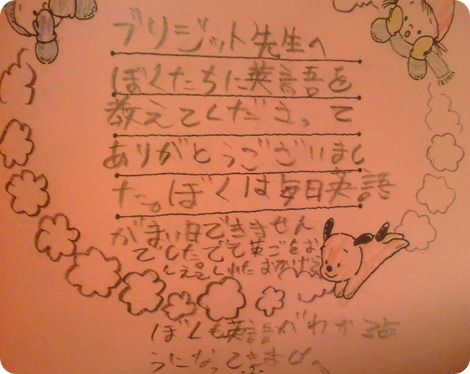 ブリジット先生へ
ぼくたちに英語を
教えてくださって
ありがとうございまし
た。ぼくは毎日英語
がまい日できません
でしたでも英ごをお
しえてくれたおかげで
ぼくも英語がわかるよ
うになってきました。